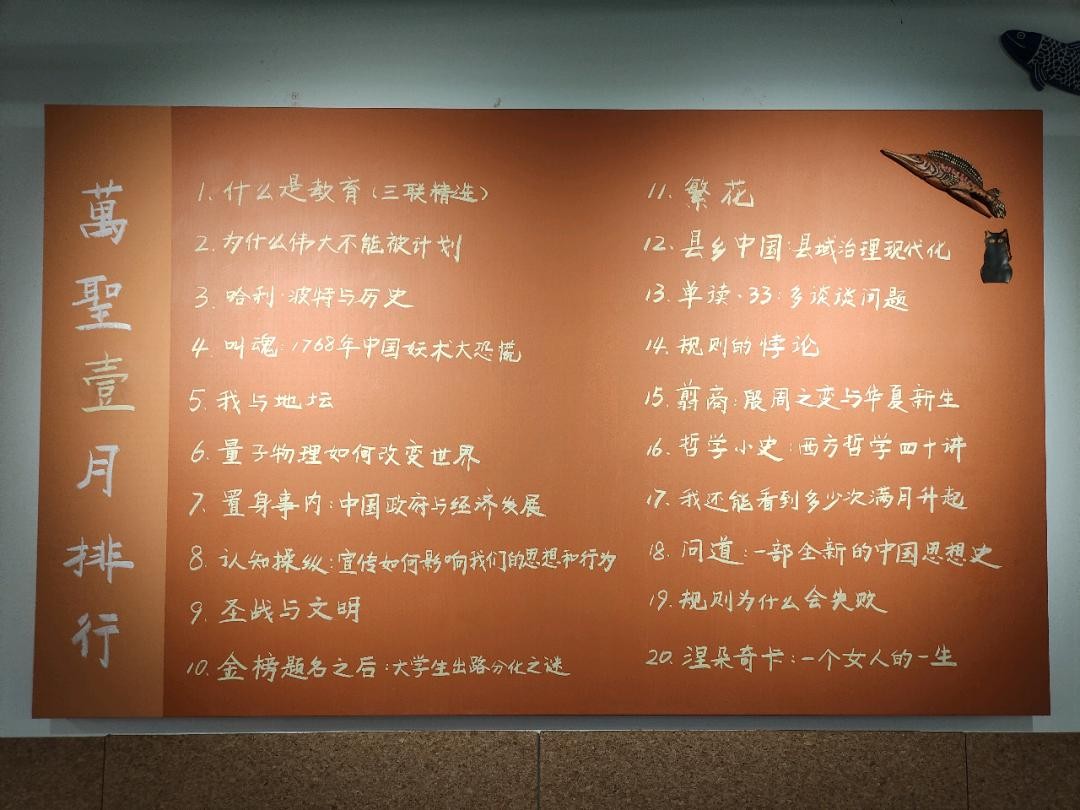 萬聖壹月排行
1. 什么是教育（三联精选）
2. 为什么伟大不能被计划
3. 哈利·波特与历史
4. 叫魂：1768年中国妖术大恐慌
5. 我与地坛
6. 量子物理如何改变世界
7. 置身事内：中国政府与经济发展
8. 认知操纵：宣传如何影响我们的思想和行为
9. 圣战与文明
10. 金榜题名之后：大学生出路分化之谜
11. 繁花
12. 县乡中国：县域治理现代化
13. 单读·33：多谈谈问题
14. 规则的悖论
15. 翦商：殷周之变与华夏新生
16. 哲学小史：西方哲学四十讲
17. 我还能看到多少次满月升起
18. 问道：一部全新的中国思想史
19. 规则为什么会失败
20. 涅朵奇卡：一个女人的一生